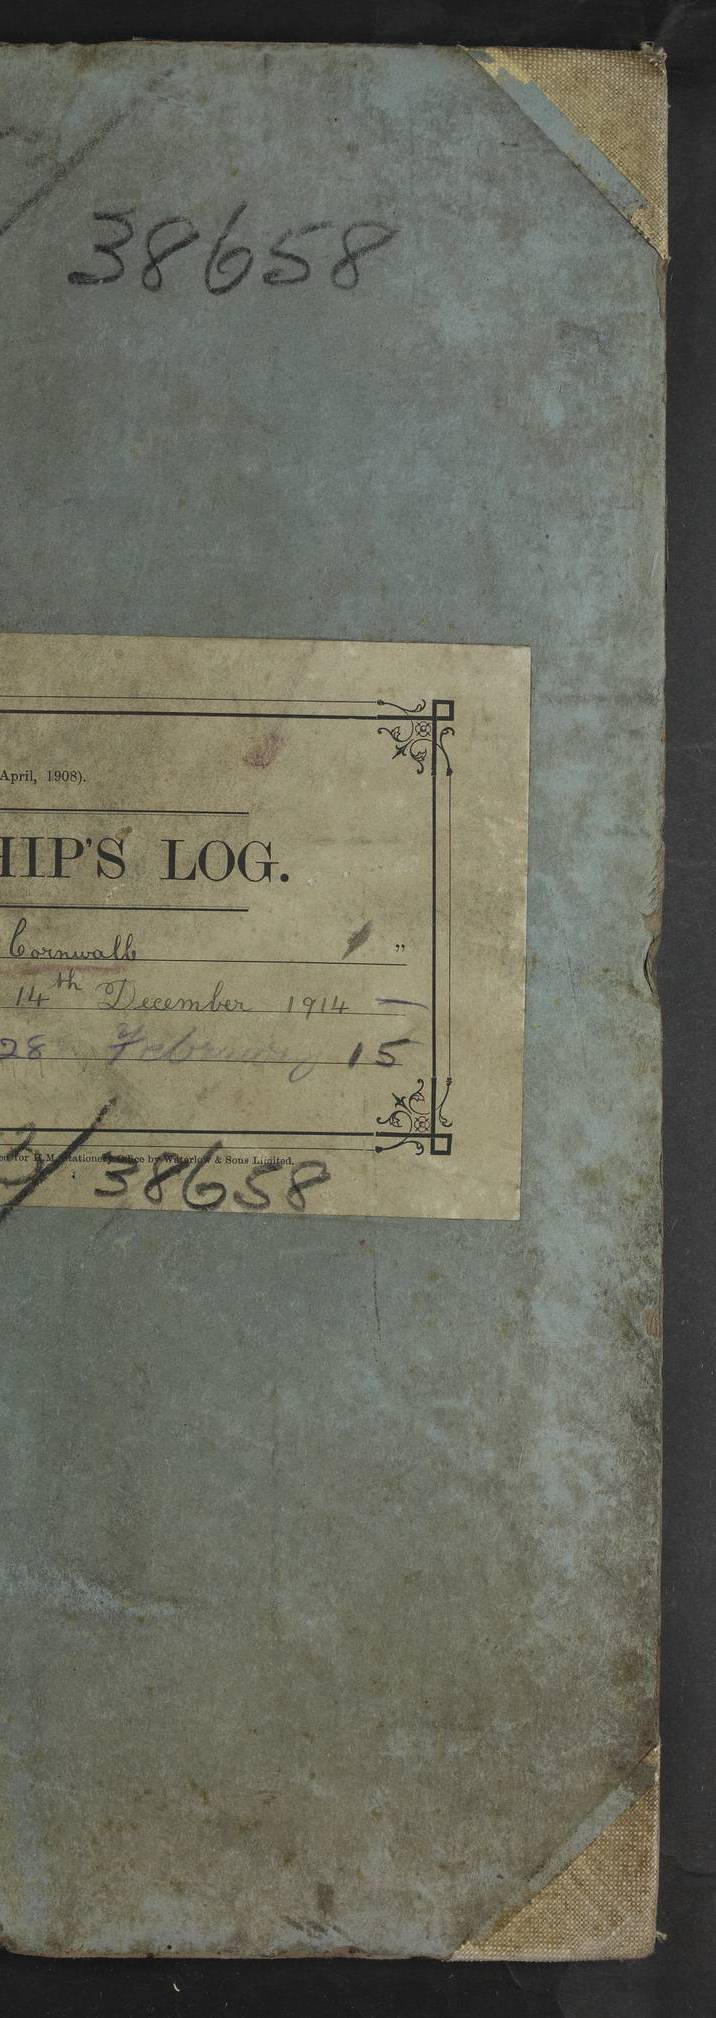 38658
April, 1908).
HIP'S LOG.
Cornwall "
14th December 1914 —
28 February 15
ed for H.M. Stationery Office by Waterlow & Sons Limited.
2/38658